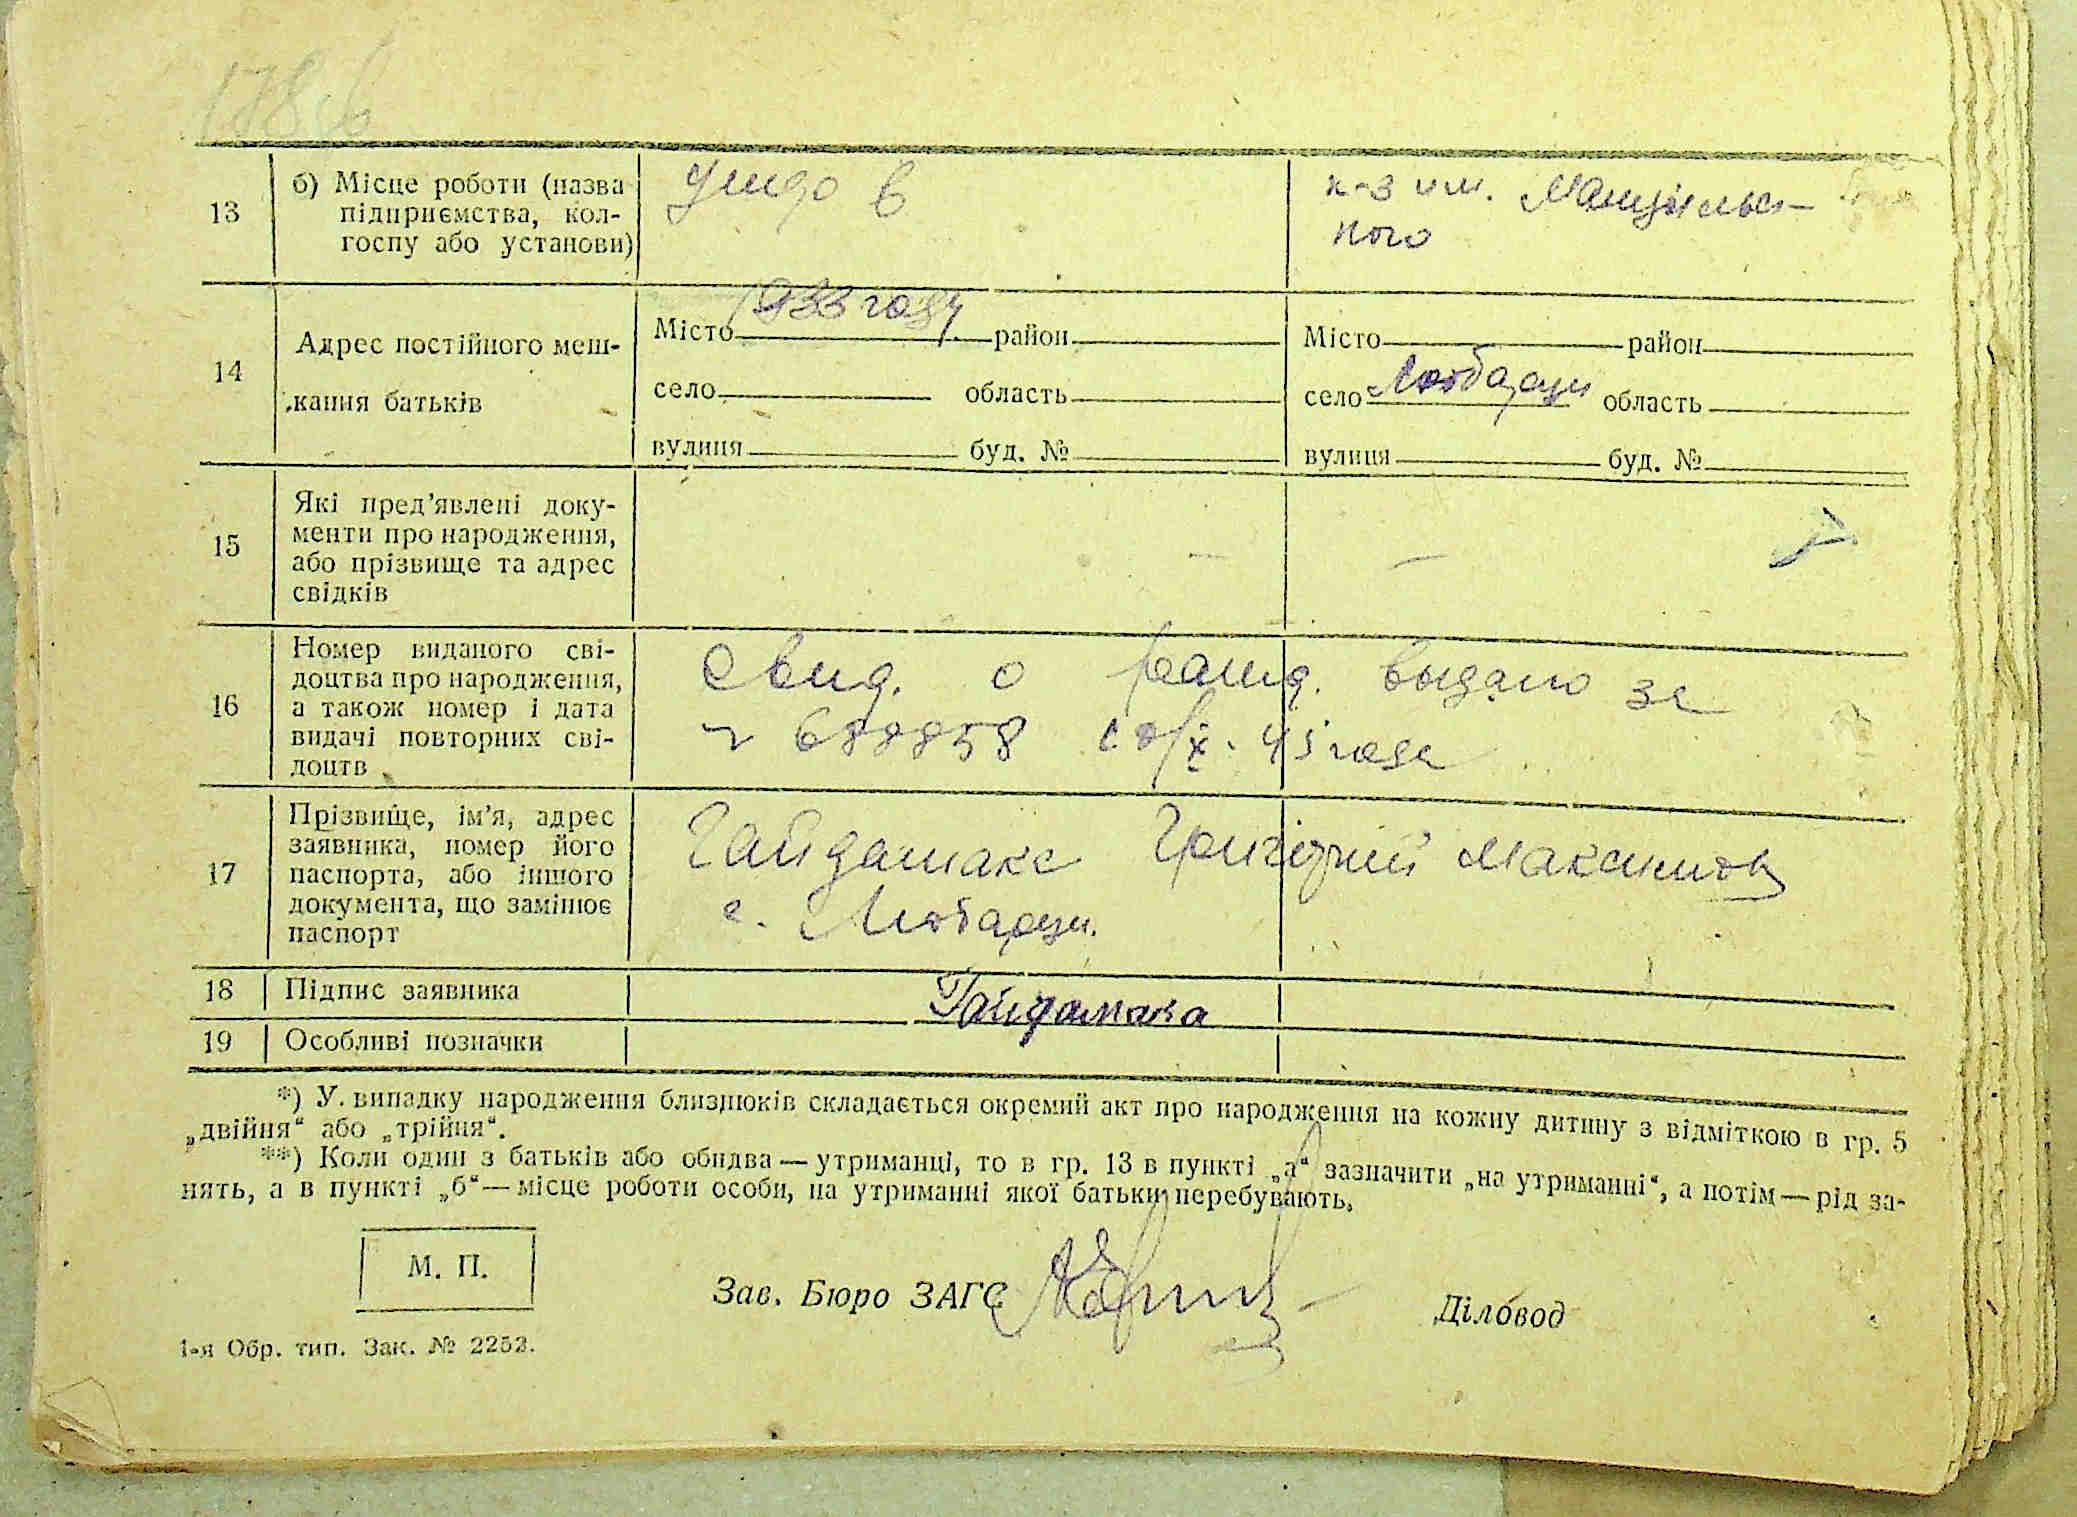 13
б) Місце роботи (назва
підприємства, кол-
госпу або установи)
к-з им. Мануильс-
кого
14
Адрес постійного меш-
кання батьків
1933 году
Місто район
село область
вулиця буд. №
Місто район
село Любарци область
вулиця буд. №
15
Які пред’явлені доку-
менти про народження,
або прізвище та адрес
свідків
— —
16
Номер виданого сві-
доцтва про народження,
а також номер і дата
видачі повторних сві-
доцтв
Свид. о рожд. выдано за
45 года
17
Прізвище, ім’я, адрес
заявника, номер його
паспорта, або іншого
документа, що замінює
паспорт
Гайдамака Григорий Максимов
с. Любарци.
18 Підпис заявника
Гайдамака
19 Особливі позначки
*) У випадку народження близнюків складається окремий акт про народження на кожну дитину з відміткою в гр. 5
„двійня“ або „трійня“.
**) Коли один з батьків або обидва — утриманці, то в гр. 13 в пункті „а“ зазначити „на утриманні“, а потім — рід за-
нять, а в пункті „б“ — місце роботи особи, на утриманні якої батьки перебувають.
М. П.
Зав. Бюро ЗАГС
Діловод
1-я Обр. тип. Зак. № 2252.